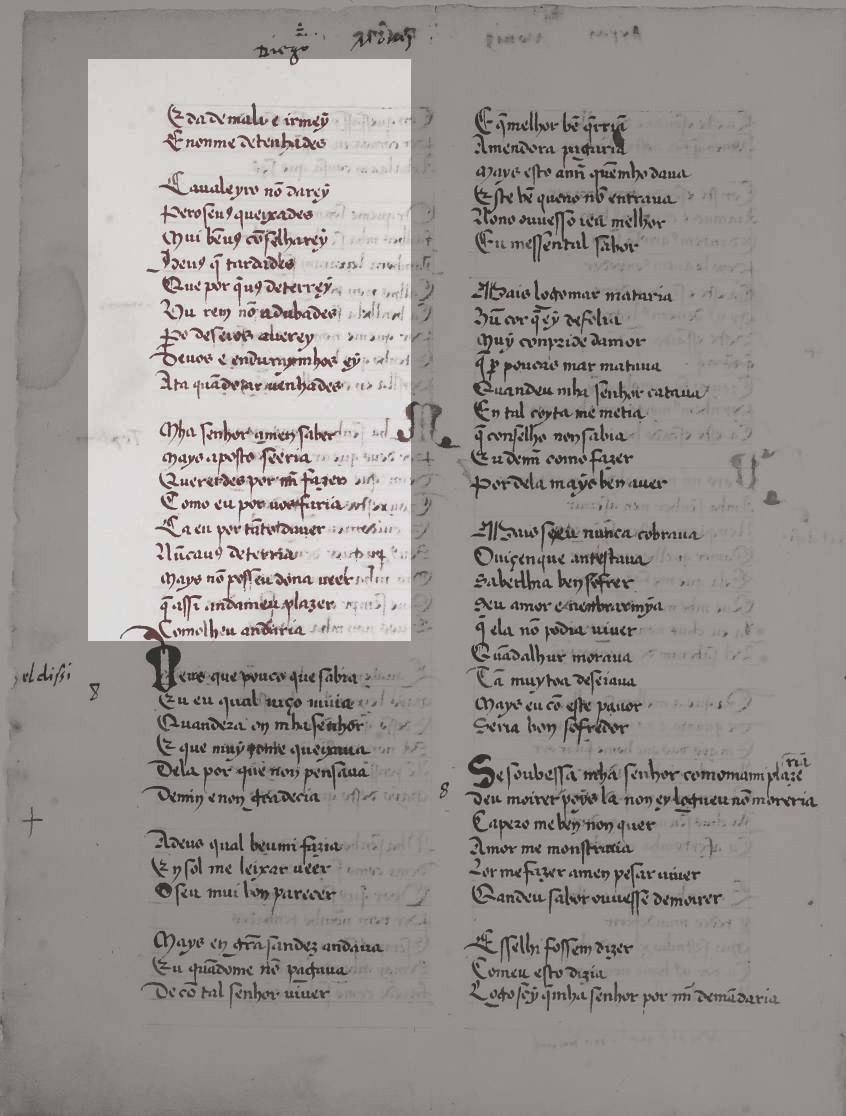 E dademalv e irmey̆
E nonme detenhades
Caualeyro nō darey̆
Pero seu9 queixades
Mui bēu9 cōselharey̆
Heu9 q̄ tardades
Que por q̄u9 deterrey̆
Hu rem nō adubades
deseios auerey
Deuos e enduraymhos ey̆
Ata quādotar uenhades
Mha senhor amen saber
mays aposto seeria
Quererdes por mī fazer
Como eu por uos faria
Ca eu por tāto dauer
Nūcau9 deterria
Mays nō posseu dona ueer
q̄ assi andameu plazer
Comolheu andaria
Deus que pouco que sabia
Eu eu qual uiço uiuia
Quandera en mha senhor
E que muy̆ queixaua
Dela por que non pensaua
Demin e non gradecia
Adeus qual beumi fazia
En sol me leixar ueer
O seu mui bon parecer
Mays en grā sandez andaua
Eu quādome nō pagaua
De cō tal senhor uiuer
E q̄ melhor bē q̄rria
Amendora pagaria
mays esto ami quēmho daua
Este bē quero nō entraua
Nono ouuesso ia melhor
Eu messental sabor
Mais logomar mataria
Hū cor q̄ ey̆ defolia
Muy̆ conpride damor
poucas mar mataua
Quandeu mha senhor cataua
En tal coyta me metia
q̄ conselho non sabia
Eu demī como fazer
Por dela mays ben auer
Mays seeu nunca cobraua
O uiçenque antestaua
Saberlhia ben sofrer
Seu amor e
q̄ ela nō podia uiuer
Guādalhur moraua
Tā muytoa deseiaua
Mays eu cō este pauor
Seria bon sofredor
Se soubessa mha senhor comomami plazeria
deu moirer poys la non ey logueu nō moreria
Ca pero me ben non quer
Amor me monstraria
Lor me fazer amen pesar uiuer
Quandeu sabor ouuesse demoirer
E sselhi fossem dizer
Comeu esto dizia
Logo sey̆ q̄ mha senhor por mī demādaria
el dissi